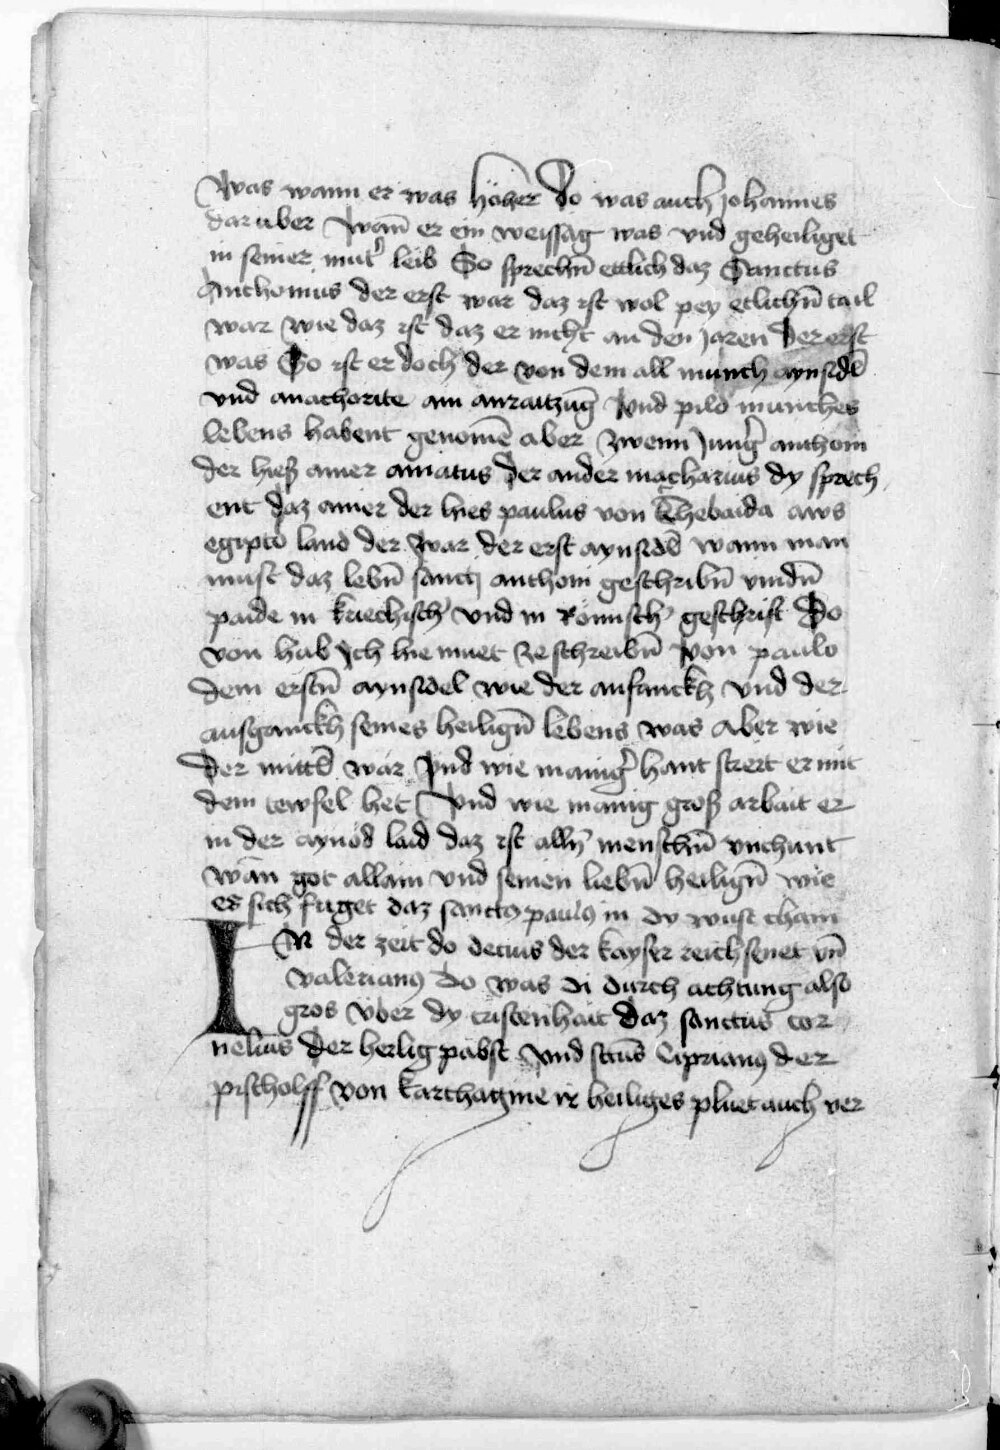 was wann er was höher Do was auch Johannes
dar uber wañ er ein weissag was vnd geheiliget
in seiner mut̉ leib So sprechñ ettlich daz Sanctus
Anthonius der erst war daz ist wol pey etlichñ tail
war wie daz ist daz er nicht an den jaren der erst
was So ist er doch der von dem all münch aynsidl̄
vnd anachorite am anraitzūg vnd pild munches
lebens habent genomē aber zwenn jung̉ anthoni
der hieß ainer amatus der ander macharius dy sprech
ent daz ainer der hies paulus von Thebaida aws
egipto land der war der erst aynsidl̄ wann man
must daz lebñ sancti anthoni geschribñ vindñ
paide in kriechisch̉ vnd in Römisch̉ geschrift Do
von hab ich hie muet ze schreibñ von paulo
dem erstñ aynsidel wie der anfanckh vnd der
ausganckh seines heiligñ lebens was aber wie
der mittl̄ war vnd wie manig̉ hant streit er mit
dem tewfel het vnd wie manig groß arbait er
in der aynöd laid daz ist alln̄ menschñ vnchunt
wān got allain vnd seinen liebñ heiligñ wie
es sich füget daz sanctꝯ paulꝯ in dy wüst cham
IN der zeit do decius der kayser reichsenet vñ
valerianꝯ do was di durch achtung also
gros über dy cristenhait daz sanctus cor
nelius der heilig pabst vnd sctūs Ciprianꝯ der
pischolff von karthagine ir heiliges pluet auch ver